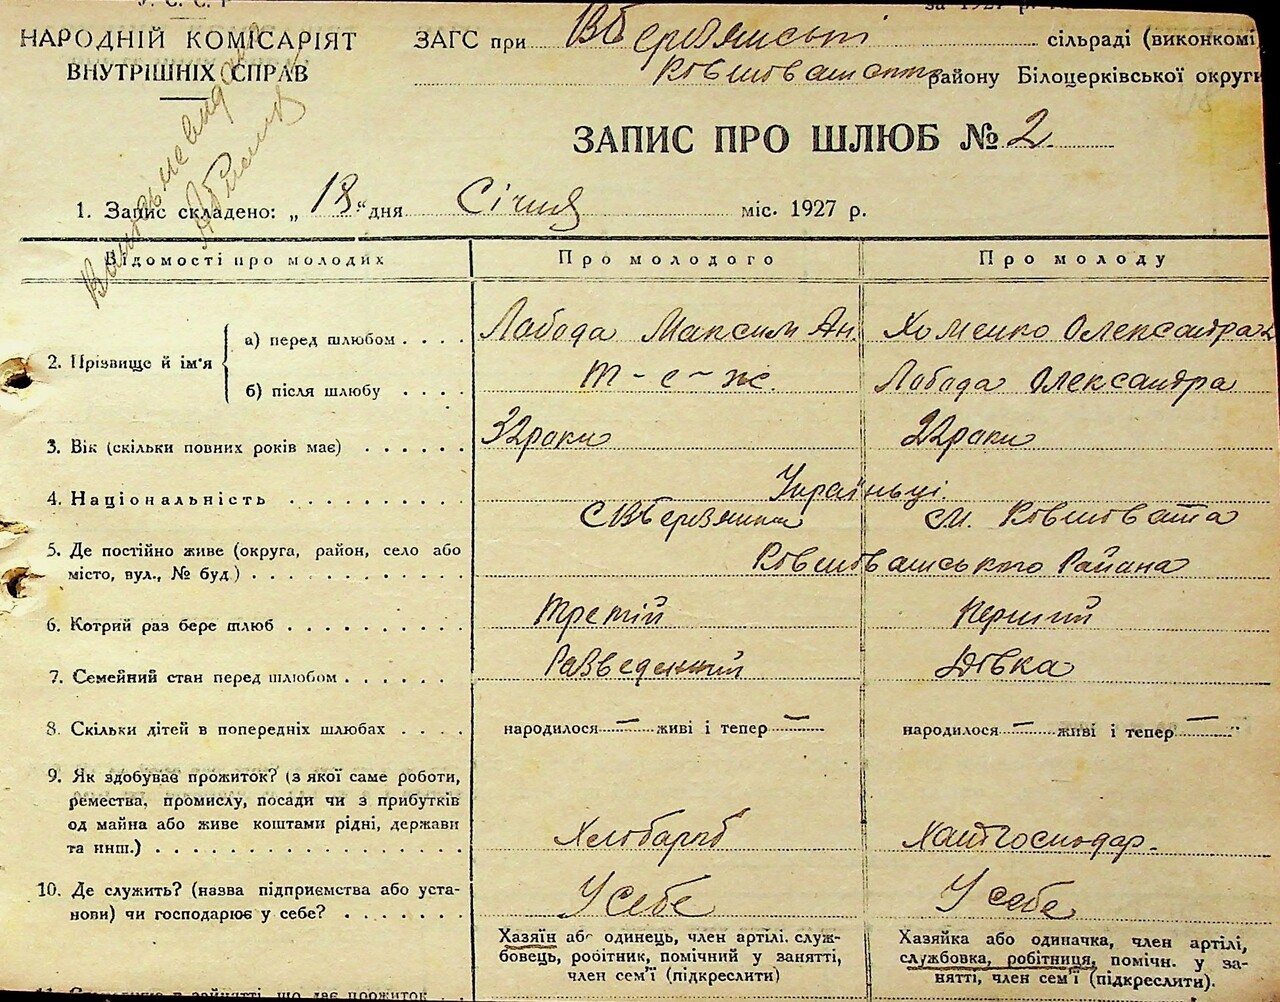 У. С. С. Р
за 1927 р.
НАРОДНІЙ КОМІСАРІЯТ
ВНУТРІШНІХ СПРАВ
ЗАГС при сільраді (виконкомі
району Білоцерківської округи
ЗАПИС ПРО ШЛЮБ № 2
1. Запис складено: „18“ дня Січня міс. 1927 р.
Відомості про молодих Про молодого Про молоду
2. Прізвище й ім'я
а) перед шлюбом . . . . Лобода Максим Ан. Хоменко Олександра
б) після шлюбу . . . . т - е - ж. Лобода Олександра
3. Вік (скільки повних років має) . . . . . . 32 роки 22 роки
4. Національність . . . . . . . . . . Україньці.
5. Де постійно живе (округа, район, село або
місто, вул., № буд.) . . . . . . . . . . . .
см.
Района
6. Котрий раз бере шлюб . . . . . . . . . . третій Перший
7. Семейний стан перед шлюбом . . . . . . Разведений Дівка
8. Скільки дітей в попередніх шлюбах . . . . народилося — живі і тепер — народилося — живі і тепер —
9. Як здобуває прожиток? (з якої саме роботи,
ремества, промислу, посади чи з прибутків
од майна або живе коштами рідні, держави
та инш.) . . . . . . . . . . . . . . . . . Хлібороб
10. Де служить? (назва підприємства або уста-
нови) чи господарює у себе? . . . . . . . У себе У себе
Хазяїн або одинець, член артілі, служ-
бовець, робітник, помічний у занятті,
член сем'ї (підкреслити)
Хазяйка або одиначка, член артілі,
службовка, робітниця, помічн. у за-
нятті, член сем'ї (підкреслити).